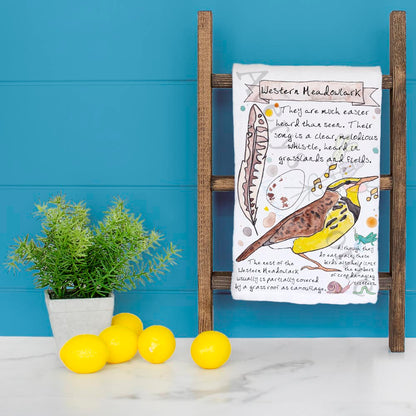 Western Meadowlark
They are much easier
heard than seen. Their
song is a clear, melodious
whistle, heard in
grasslands and fields.
Although they
do eat grain, these
birds also help limit
the numbers
of crop damaging
insects.
The nest of the
Western Meadowlark
usually is partially covered
by a grass roof as camouflage.